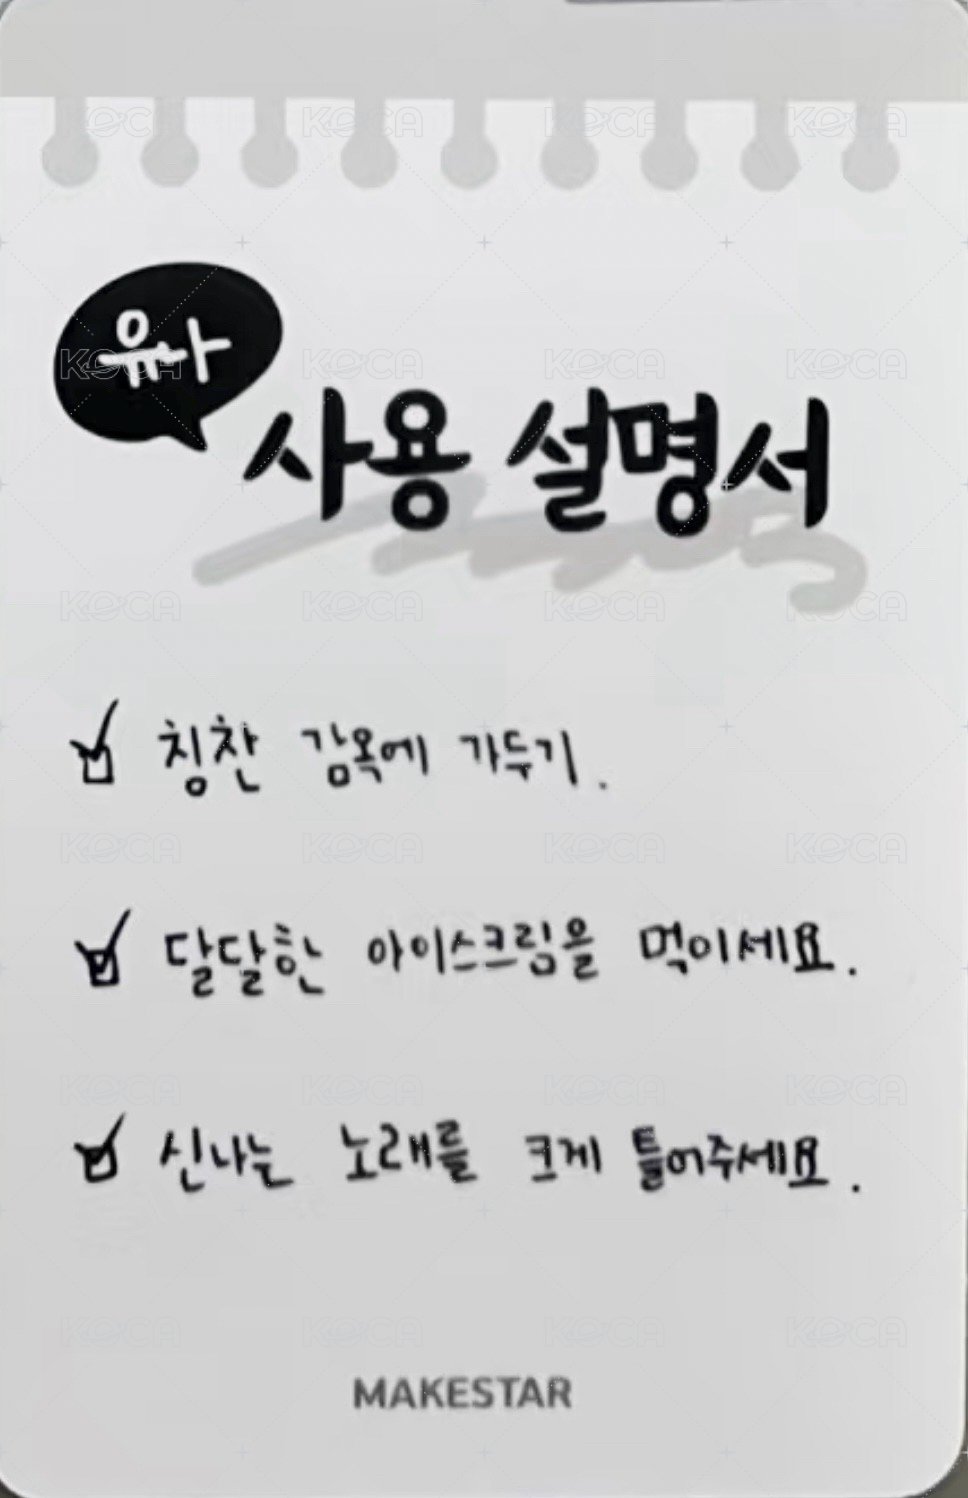 유아
사용 설명서
칭찬 감옥에 가두기.
달달한 아이스크림을 먹이세요.
신나는 노래를 크게 틀어주세요.
MAKESTAR
KOCA